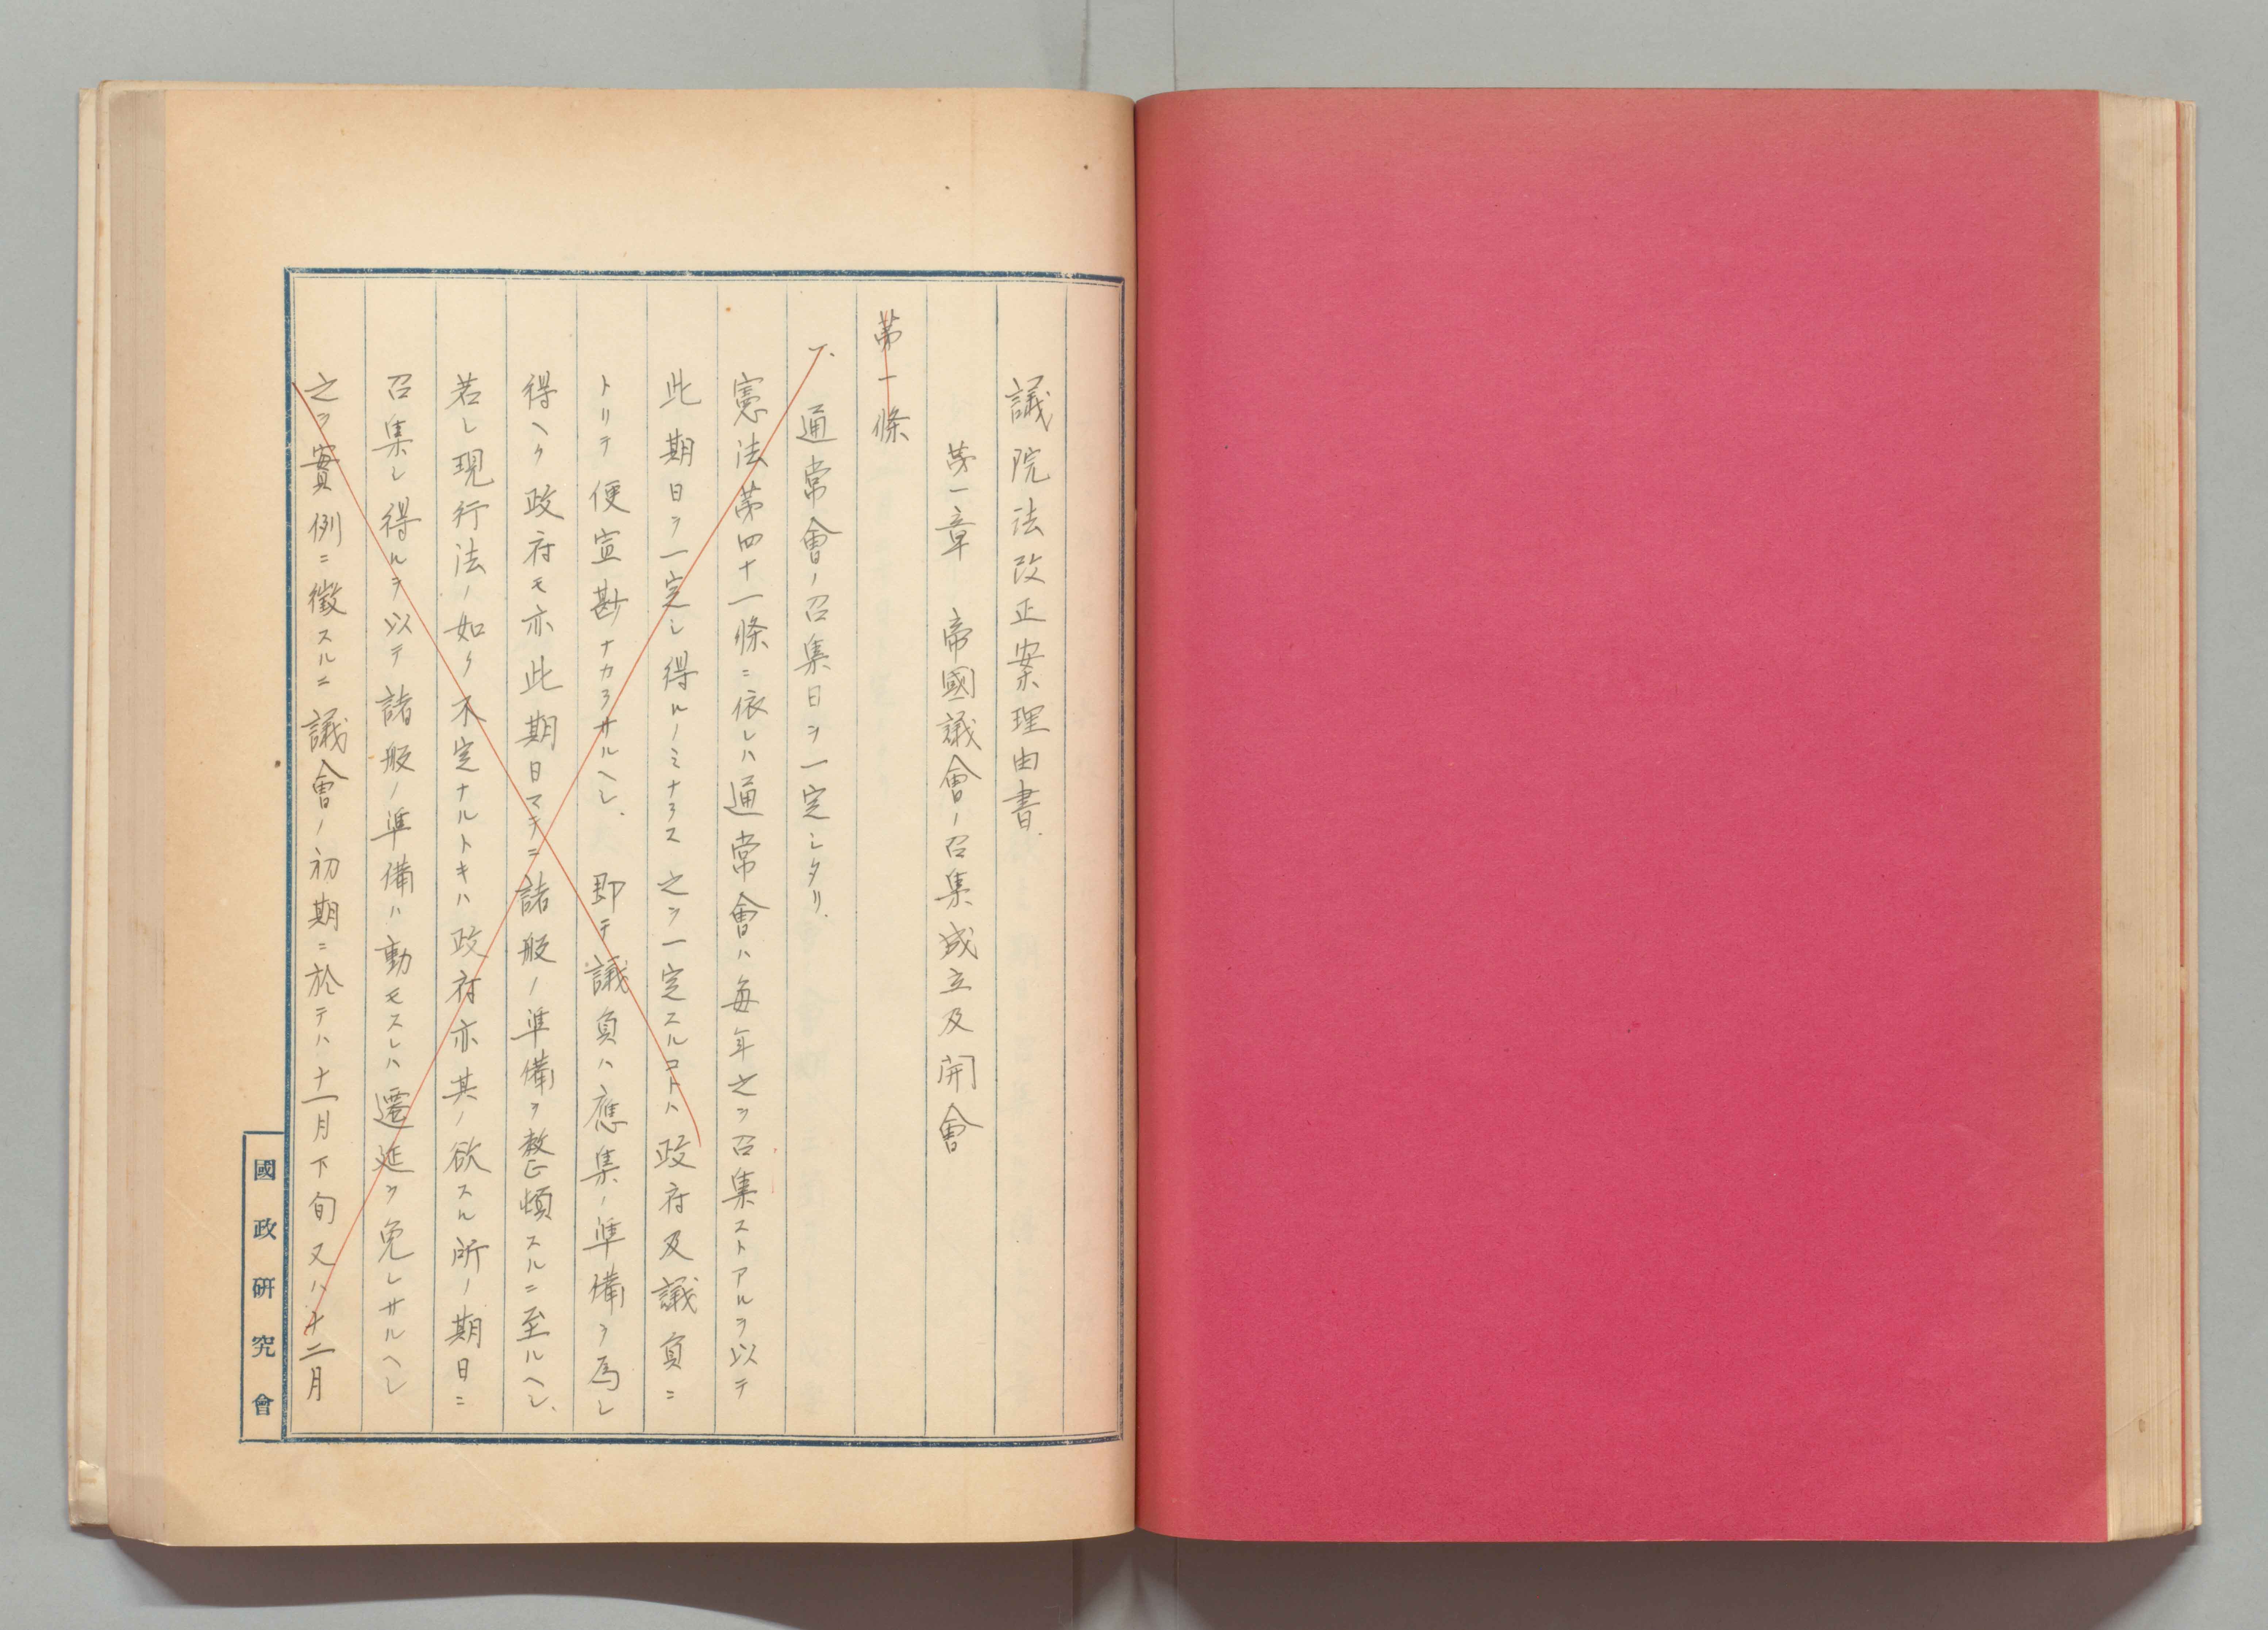 議院法改正案理由書.
第一章 帝國議會ノ召集成立及開會
第一條
一、通常會ノ召集日ヲ一定シタリ.
憲法第四十一條ニ依レハ通常會ハ每年之ヲ召集ストアルヲ以テ
此期日ヲ一定シ得ルノミナラス之ヲ一定スルコトハ政府及議員ニ
トリテ便宜尠ナカラサルヘシ.即チ議員ハ應集ノ準備ヲ爲シ
得ヘク政府モ亦此期日マテニ諸般ノ準備ヲ整頓スルニ至ルヘシ、
若シ現行法ノ如ク不定ナルトキハ政府亦其ノ欲スル所ノ期日ニ
召集シ得ルヲ以テ諸般ノ準備ハ動モスレハ遷延ヲ免レサルヘシ
之ヲ實例ニ徵スルニ議會ノ初期ニ於テハ十一月下旬又ハ十二月
國政硏究會